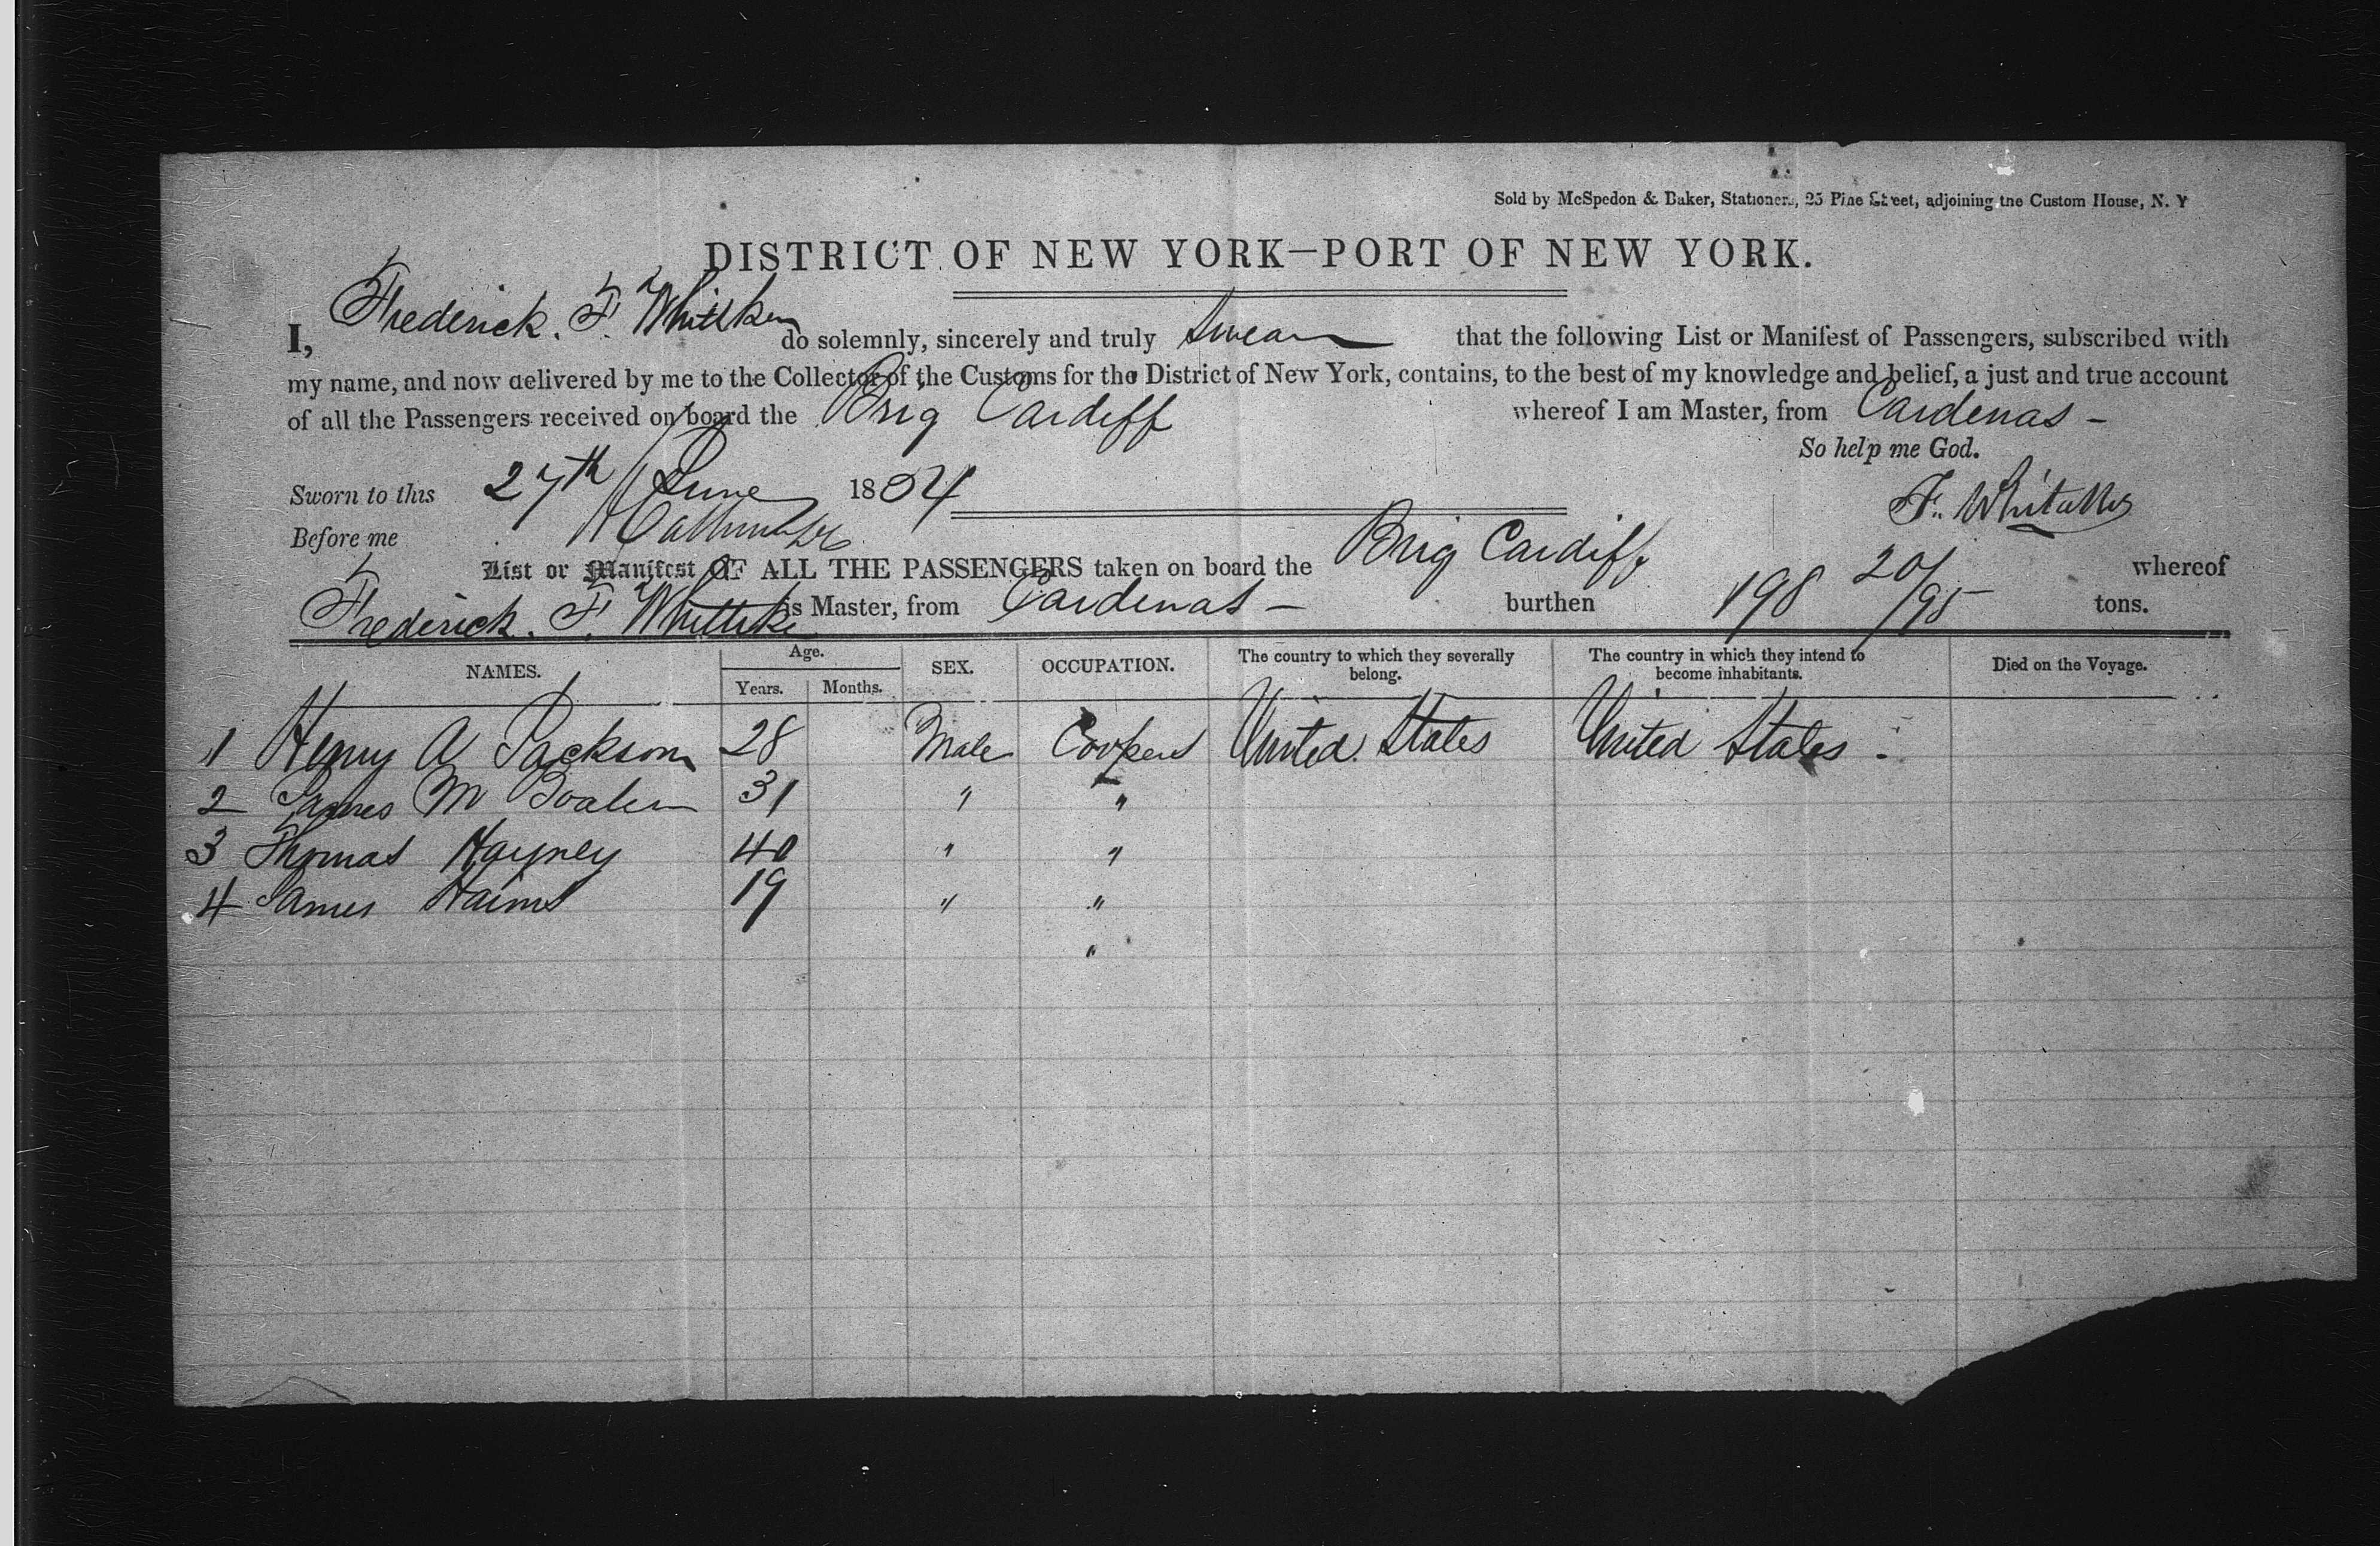 Sold by McSpedon & Baker, Stationers, 25 Pine Street, adjoining the Custom House, N. Y
DISTRICT OF NEW YORK—PORT OF NEW YORK.
I, Frederick. F. do solemnly, sincerely and truly Swear that the following List or Manifest of Passengers, subscribed with
my name, and now delivered by me to the Collector of the Customs for the District of New York, contains, to the best of my knowledge and belief, a just and true account
of all the Passengers received on board the Brig Cardiff whereof I am Master, from Cardenas -
So help me God.
Sworn to this 27th June 1854
F. 
Before me
List or Manifest OF ALL THE PASSENGERS taken on board the Brig Cardiff whereof
Frederick. F. is Master, from Cardenas - burthen 198 20/95 tons.
NAMES. Age. Years. Months. SEX. OCCUPATION. The country to which they severally belong. The country in which they intend to become inhabitants. Died on the Voyage.
1 Henry A Jackson 28 Male Coopers United States United States -
2 James M 31 " "
3 Thomas Hayney 40 " "
4 James 19 " "
"